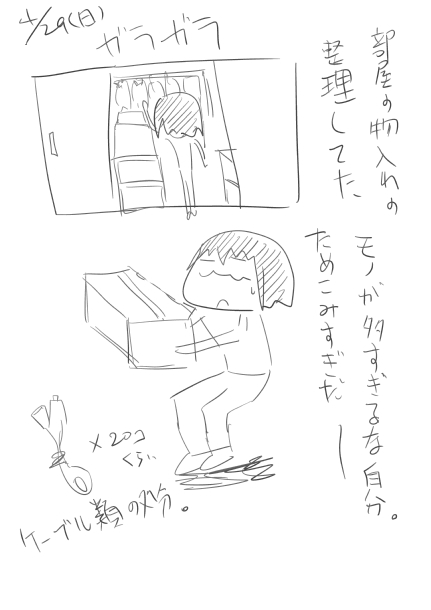 4/29(日)
ガラガラ
部屋の物入れの
整理してた、
モノが多すぎるな自分。
ためこみすぎだー
×20コ
くらい
ケーブル類の処分。